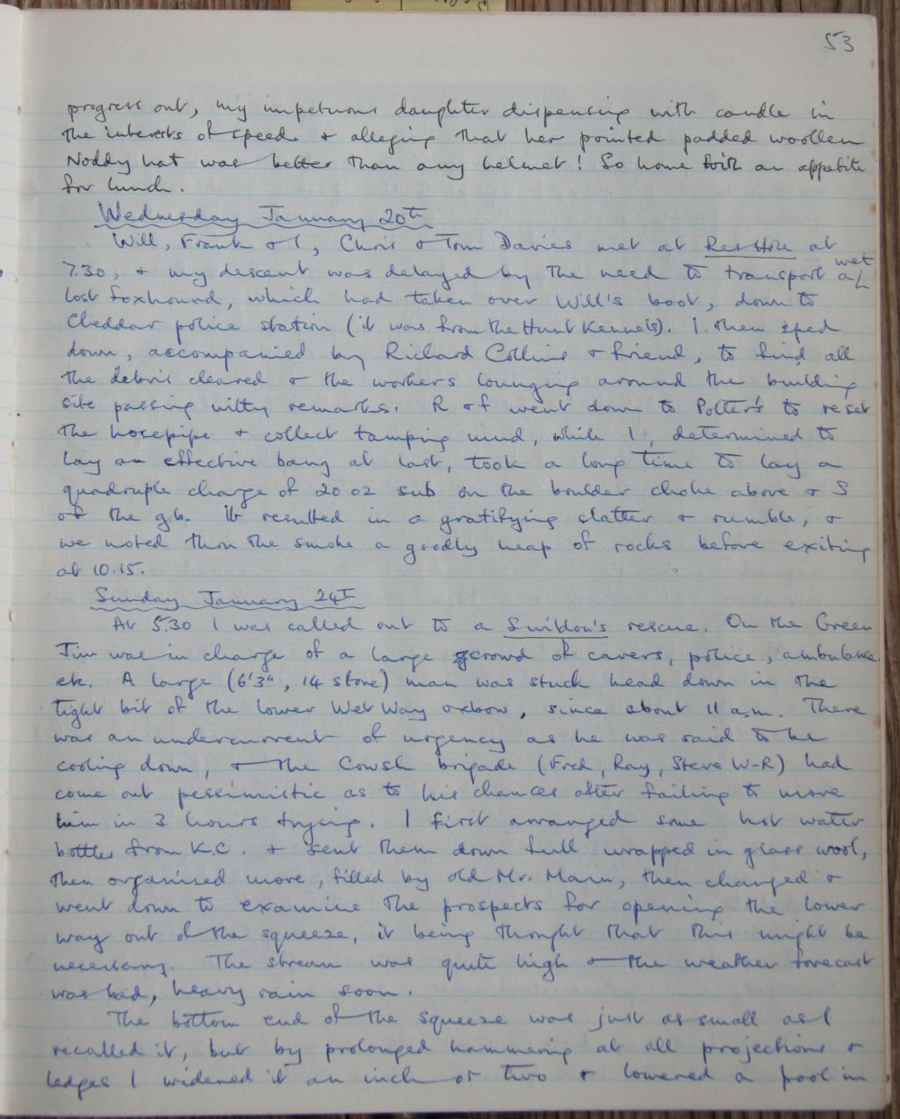 53
progress out, my impetuous daughter dispensing with candle in
the interests of speed & alleging that her pointed padded woollen
Noddy hat was better than any helmet! So home with an appetite
for lunch.
Wednesday January 20th
Will, Frank & I, Chris & Tom Davies met at at
7.30, & my descent was delayed by the need to transport a wet
lost foxhound, which had taken over Will's boot, down to
Cheddar police station (it was from the Hunt Kennels). I then sped
down, accompanied by Richard Collins & friend, to find all
the debris cleared & the workers lounging around the building
site passing witty remarks. R & f went down to Potter's to reset
the hosepipe & collect tamping mud, while I, determined to
lay an effective bang at last, took a long time to lay a
quadruple charge of 20 oz sub on the boulder choke above & S
of the g.b. It resulted in a gratifying clatter & rumble, &
we noted thro the smoke a goodly heap of rocks before exiting
at 10.15.
Sunday January 24th
At 5.30 I was called out to a Swildon's rescue. On the Green
Jim was in charge of a large crowd of cavers, police, ambulance
etc. A large (6'3", 14 stone) man was stuck head down in the
tight bit of the lower Wet Way oxbow, since about 11 a.m. There
was an undercurrent of urgency as he was said to be
cooling down, & the Cowsh brigade (Fred, Ray, Steve W-R) had
come out pessimistic as to his chances after failing to move
him in 3 hours trying. I first arranged some hot water
bottles from K.C. & sent them down full wrapped in glass wool,
then organised more, filled by old Mr. Mann, then changed &
went down to examine the prospects for opening the lower
way out of the squeeze, it being thought that this might be
necessary. The stream was quite high & the weather forecast
was bad, heavy rain soon.
The bottom end of the squeeze was just as small as I
recalled it, but by prolonged hammering at all projections &
ledges I widened it an inch or two & lowered a pool in